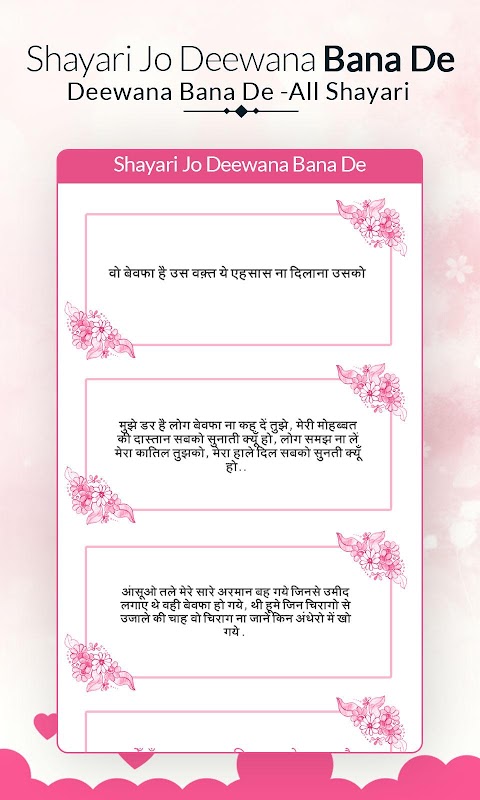 Shayari Jo Deewana Bana De
Deewana Bana De -All Shayari
Shayari Jo Deewana Bana De
वो बेवफा है उस वक़्त ये एहसास ना दिलाना उसको
मुझे डर है लोग बेवफा ना कहु दें तुझे, मेरी मोहब्बत
की दास्तान सबको सुनाती क्यूँ हो, लोग समझ ना लें
मेरा कातिल तुझको, मेरा हाले दिल सबको सुनती क्यूँ
हो..
आंसूओ तले मेरे सारे अरमान बह गये जिनसे उमीद
लगाए थे वही बेवफा हो गये, थी हूमे जिन चिरागो से
उजाले की चाह वो चिराग ना जाने किन अंधेरो में खो
गये.